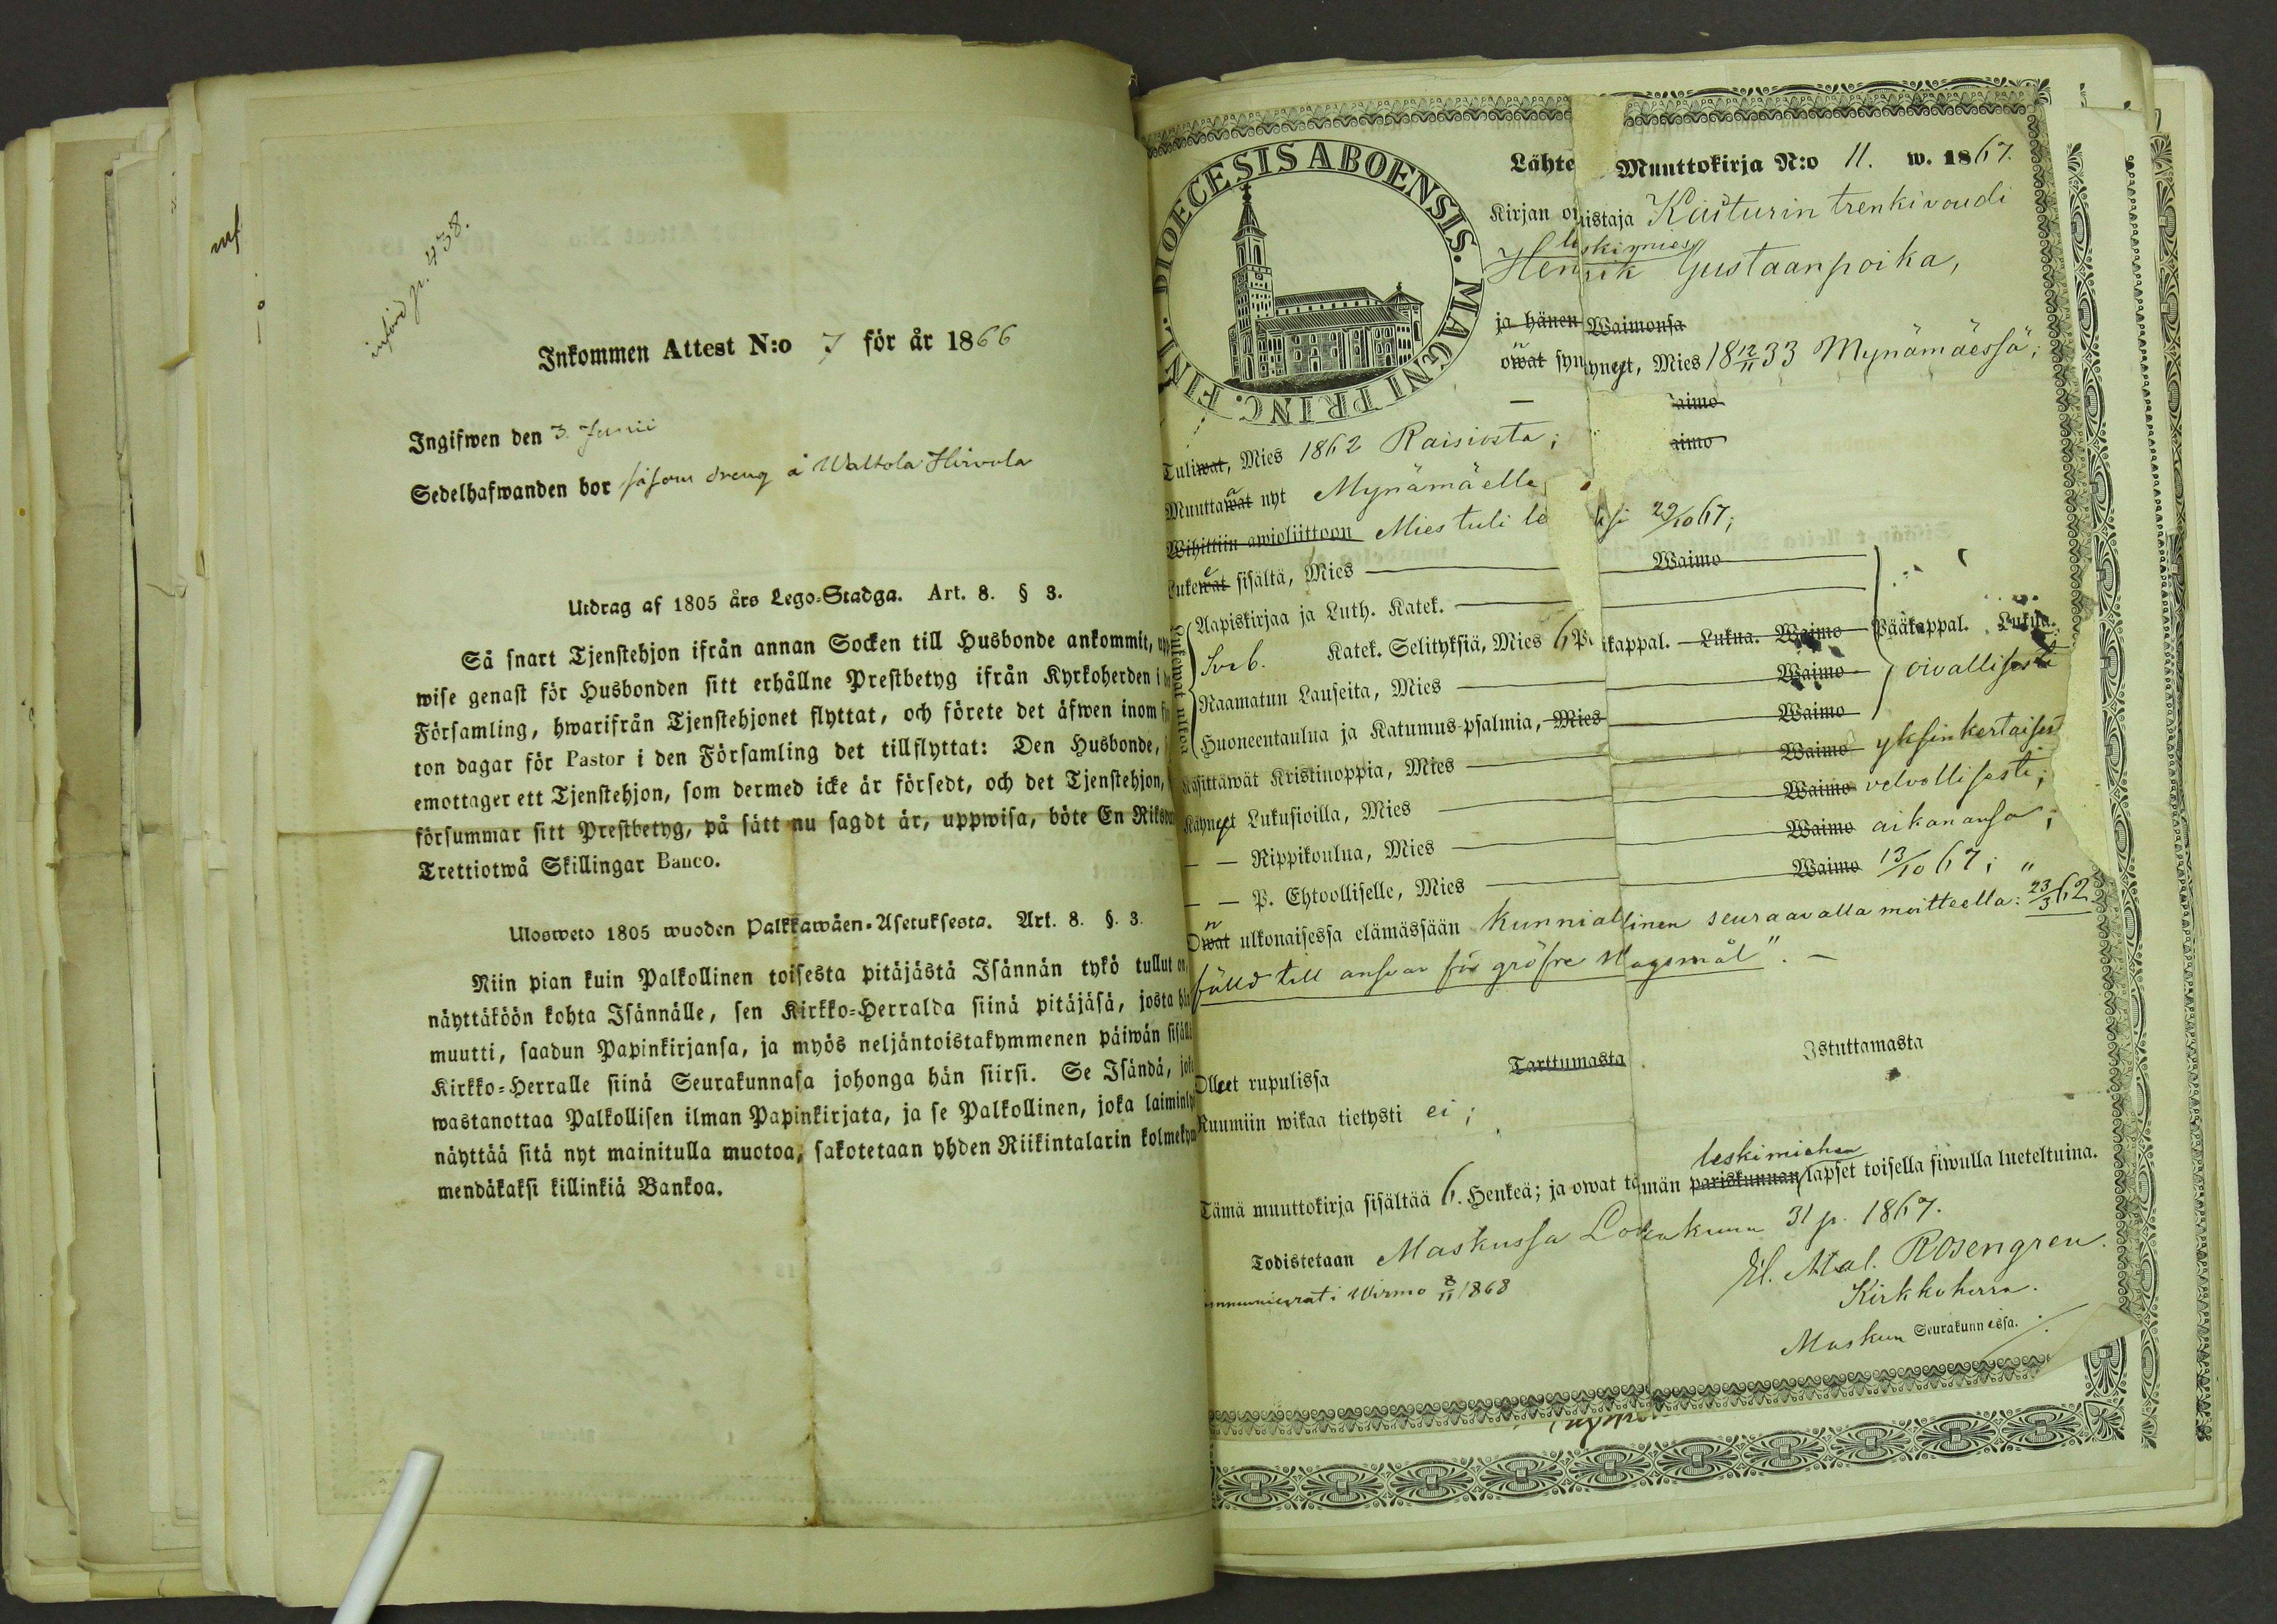 införd p. 438.
Inkommen Attest N:o 7 för år 1866
Ingifwen den 3. Junii
Sedelhafwanden bor såsom dreng å Waltola Hirvola
Utdrag af 1805 års Lego-Stadga. Art. 8. § 3.
Så snart Tjenstehjon ifrån annan Socken till Husbonde ankommit, upp
wise genast för Husbonden sitt erhållne Prestbetyg ifrån Kyrkoherden i
Församling, hwarifrån Tjenstehjonet flyttat, och förete det äfwen inom
ton dagar för Pastor i den Församling det tillflyttat: Den Husbonde,
emottager ett Tjenstehjon, som dermed icke är försedt, och det Tjenstehjon,
försummar sitt Prestbetyg, på sätt nu sagdt är, uppwisa, böte En Riksda
Trettiotwå Skillingar Banco.
Ulosweto 1805 wuoden Palkkawäen-Asetuksesta. Art. 8. §. 3.
Niin pian kuin Palkollinen toisesta pitäjästä Isännän tykö tullut on,
näyttäköön kohta Isännälle, sen Kirkko-Herralda siinä pitäjäsä, josta hän
muutti, saadun Papinkirjansa, ja myös neljäntoistakymmenen päiwän sisälli
Kirkko-Herralle siinä Seurakunnasa johonga hän siirsi. Se Isändä, jok
wastanottaa Palkollisen ilman Papinkirjata, ja se Palkollinen, joka laiminly
näyttää sitä nyt mainitulla muotoa, sakotetaan yhden Riikintalarin kolmekym
mendäkaksi killinkiä Bankoa.
DIOECESIS ABOENSIS. MAGNI PRINC. FINL.
Lähte Muuttokirja N:o 11. w. 1867.
Kirjan omistaja Kuisturin trenkivoudi
leskimies
Henrik Gustaanpoika,
ja hänen Waimonsa
owat syntyneet, Mies 18 12/11 33 Mynämäessä;
— Waimo
Tuliwat, Mies 1862 Raisiosta; Waimo
Muuttawat nyt Mynämäelle
Wihittiin awioliittoon Mies tuli le ksi 29/10 67;
Lukewat sisältä, Mies Waimo
Lukewat ulkoa
Aapiskirjaa ja Luth. Katek.
Sveb. Katek. Selityksiä, Mies 6 Pääkappal. Lukua. Waimo Pääkappal. Lukua.
Raamatun Lauseita, Mies Waimo oivallisesti
Huoneentaulua ja Katumus-psalmia, Mies Waimo
Käsittäwät Kristinoppia, Mies Waimo yksinkertaisest
Käyneet Lukusioilla, Mies Waimo velvollisesti;
— — Rippikoulua, Mies Waimo aikanansa;
— — P. Ehtoolliselle, Mies Waimo 13/10 67;
Owat ulkonaisessa elämässään kunniallinen seuraavalla moitteella: " 23/3 62
fälld till ansvar för gröfre slagsmål". —
Olleet rupulissa Tarttumasta Istuttamasta
Ruumiin wikaa tietysti ei;
leskimiehen
Tämä muuttokirja sisältää 6. Henkeä; ja owat tämän pariskunnan lapset toisella siwulla lueteltuina.
Todistetaan Maskussa Lokakuun 31 p. 1867.
Wirmo 8/11 1868
El. Mal. Rosengren.
Kirkkoherra.
Maskun Seurakunnissa.